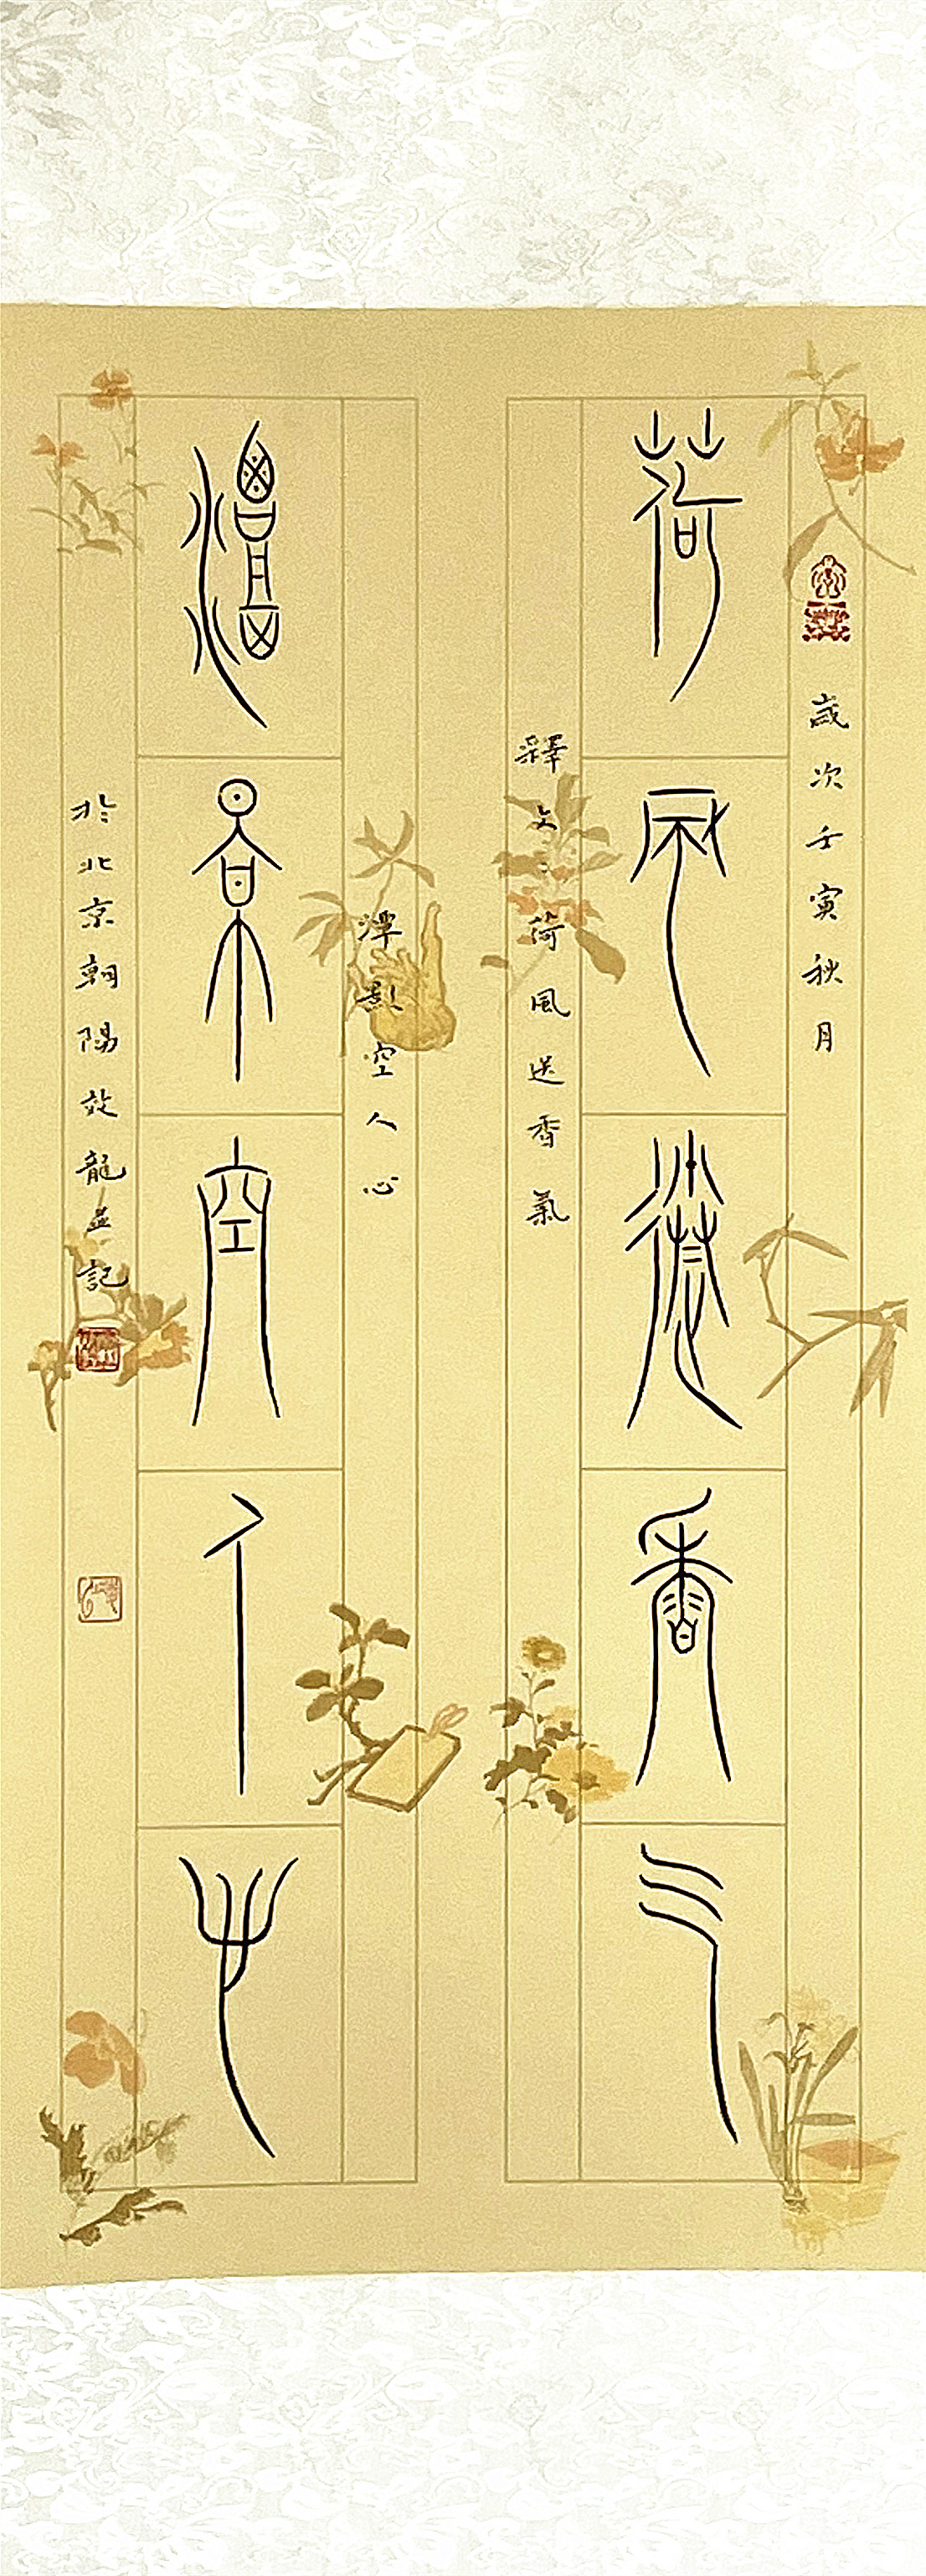 歲次壬寅秋月
荷風送香氣
釋文：荷風送香氣
潭影空人心
潭影空人心
於北京朝陽效龍並記